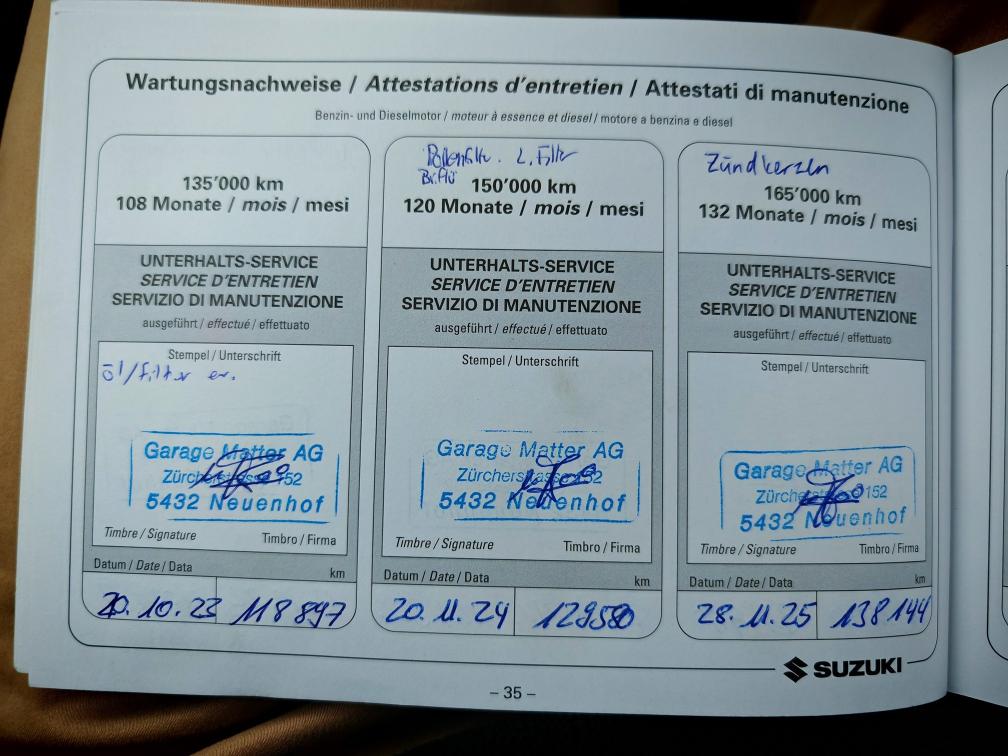 Wartungsnachweise / Attestations d'entretien / Attestati di manutenzione
Benzin- und Dieselmotor / moteur à essence et diesel / motore a benzina e diesel
135'000 km
108 Monate / mois / mesi
UNTERHALTS-SERVICE
SERVICE D'ENTRETIEN
SERVIZIO DI MANUTENZIONE
ausgeführt / effectué / effettuato
Stempel / Unterschrift
Öl/Filter er.
Garage Matter AG
Zürcherstrasse 152
5432 Neuenhof
Timbre / Signature Timbro / Firma
Datum / Date / Data km
20.10.23 118897
Pollenfilter. L. Filter
150'000 km
120 Monate / mois / mesi
UNTERHALTS-SERVICE
SERVICE D'ENTRETIEN
SERVIZIO DI MANUTENZIONE
ausgeführt / effectué / effettuato
Stempel / Unterschrift
Garage Matter AG
Zürcherstrasse 152
5432 Neuenhof
Timbre / Signature Timbro / Firma
Datum / Date / Data km
20.11.24 129580
Zündkerzen
165'000 km
132 Monate / mois / mesi
UNTERHALTS-SERVICE
SERVICE D'ENTRETIEN
SERVIZIO DI MANUTENZIONE
ausgeführt / effectué / effettuato
Stempel / Unterschrift
Garage Matter AG
Zürcherstrasse 152
5432 Neuenhof
Timbre / Signature Timbro / Firma
Datum / Date / Data km
28.11.25 138144
SUZUKI
– 35 –